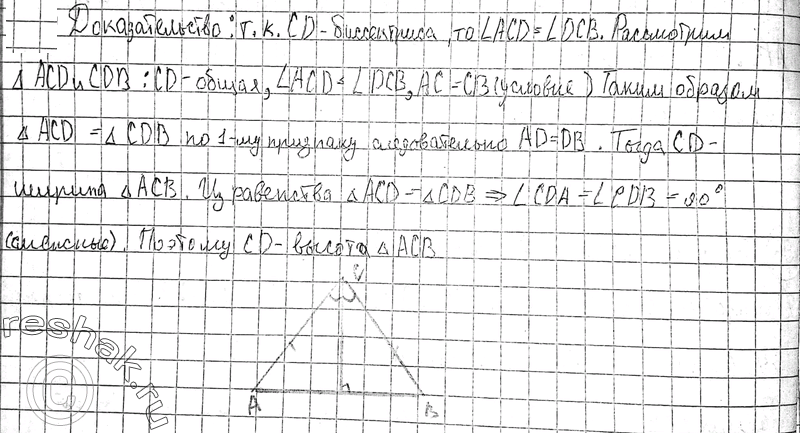 Доказательство: т.к. CD-биссектриса, то ∠ACD=∠DCB. Рассмотрим
△ ACD и CDB: CD-общая, ∠ACD=∠DCB, AC=CB (условие) Таким образом
△ ACD = △ CDB по 1-му признаку следовательно AD=DB. Тогда CD-
△ ACB. Из равенства △ ACD=△CDB ⇒ ∠CDA=∠CDB=90°
(смежные). Поэтому CD-высота △ ACB
C
A
B
reshak.ru